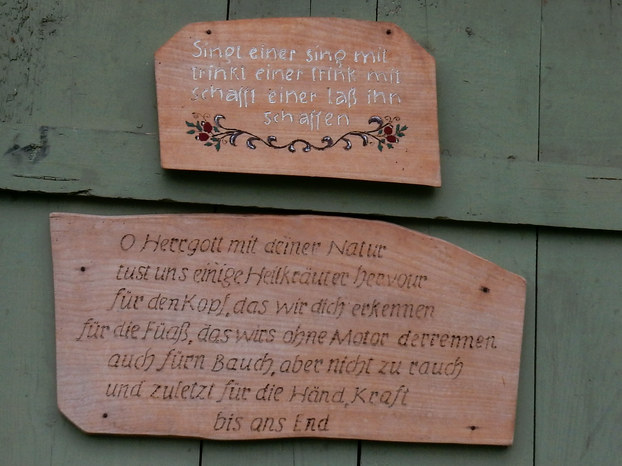 Singt einer sing mit
trinkt einer trink mit
schafft einer laß ihn
schaffen
O Herrgott mit deiner Natur
tust uns einige Heilkräuter hervour
für den Kopf, das wir dich erkennen
für die Füaß, das wirs ohne Motor derrennen
auch fürn Bauch, aber nicht zu rauch
und zuletzt für die Händ, Kraft
bis ans End